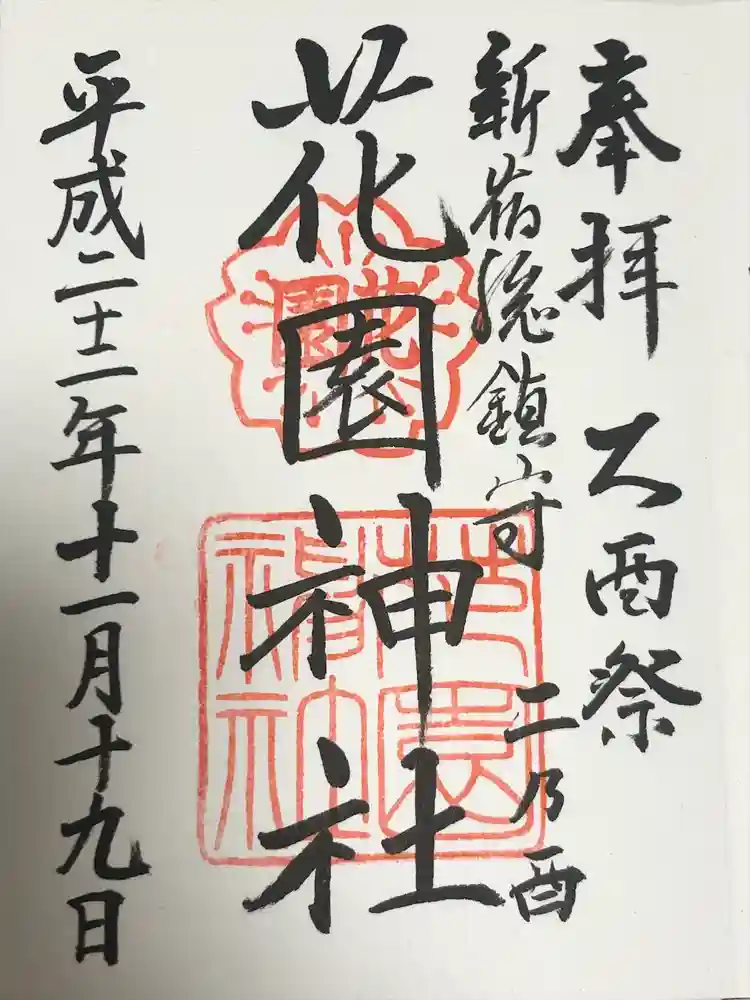 奉拝 大酉祭
新宿総鎮守
二乃酉
花園神社
平成二十二年十一月十九日